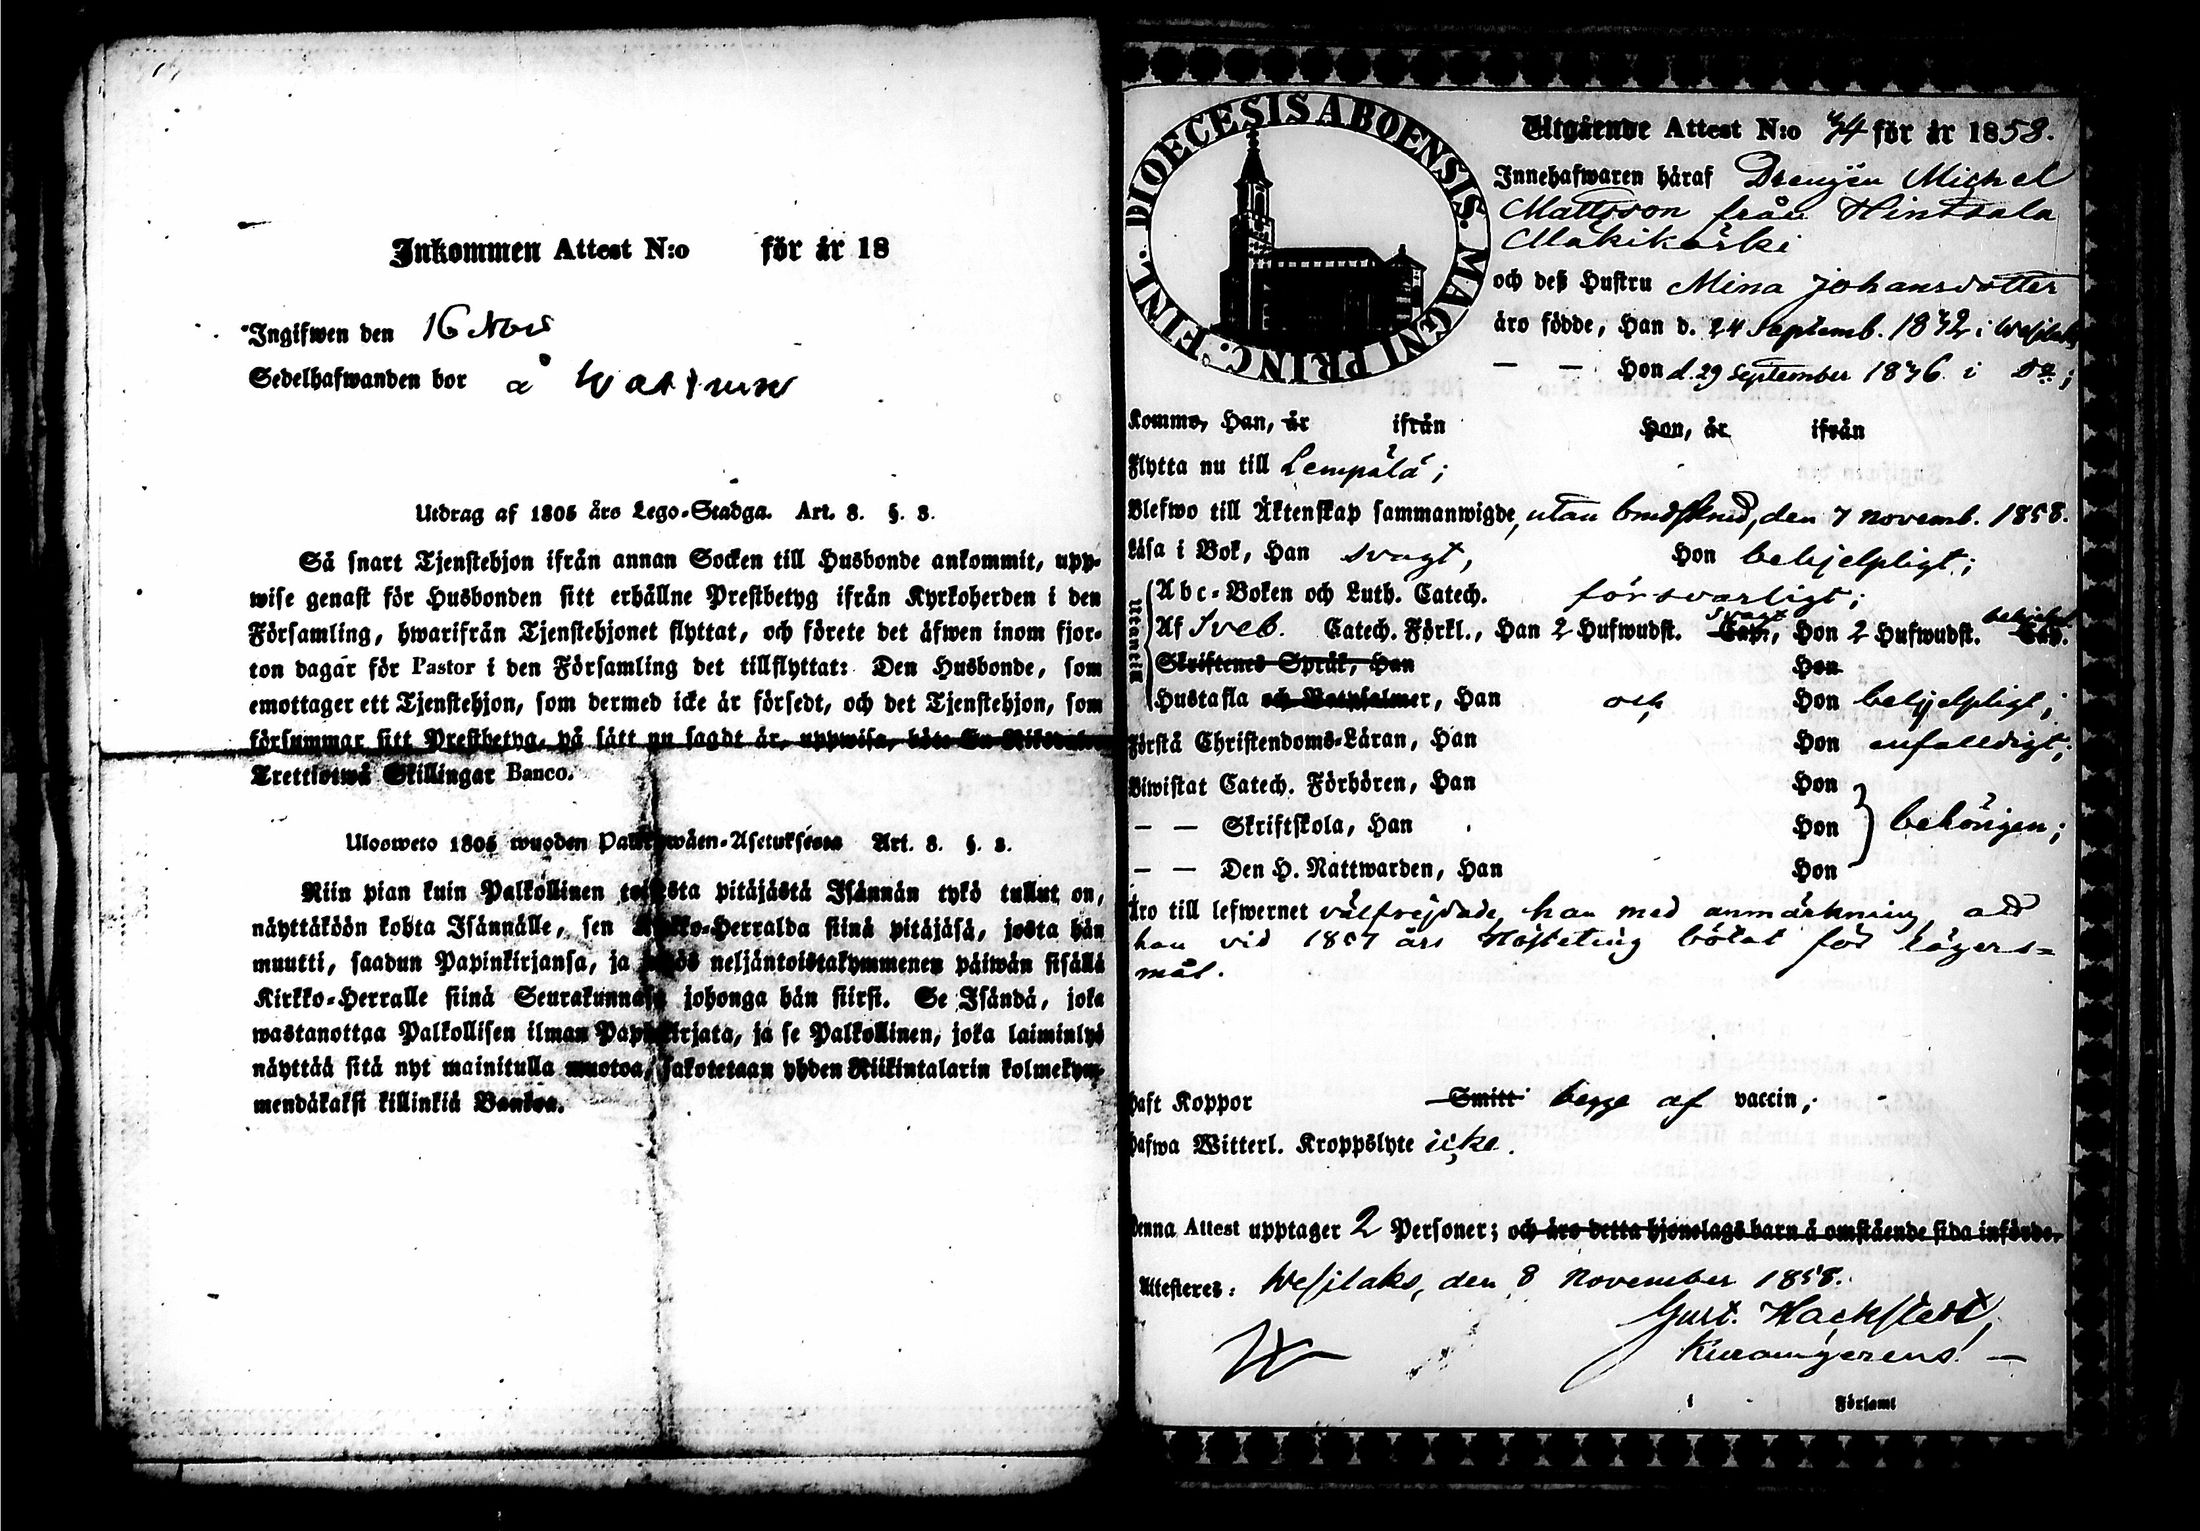 Inkommen Attest N:o för år 18
Ingifwen den 16 Nov
Sedelhafwanden bor å
Utdrag af 1805 års Lego-Stadga. Art. 8. §. 3.
Så snart Tjenstehjon ifrån annan Socken till Husbonde ankommit, upp-
wise genast för Husbonden sitt erhållne Prestbetyg ifrån Kyrkoherden i den
Församling, hwarifrån Tjenstehjonet flyttat, och förete det äfwen inom fjor-
ton dagar för Pastor i den Församling det tillflyttat: Den Husbonde, som
emottager ett Tjenstehjon, som dermed icke är försedt, och det Tjenstehjon, som
försummar sitt Prestbetyg, på sätt nu sagdt är, uppwisa, böte En Riksdaler
Trettiotwå Skillingar Banco.
Ulosweto 1805 wuoden Palkkawäen-Asetuksesta Art. 8. §. 3.
Niin pian kuin Palkollinen toisesta pitäjästä Isännän tykö tullut on,
näyttäköön kohta Isännälle, sen Kirkko-Herralda siinä pitäjäsä, josta hän
muutti, saadun Papinkirjansa, ja myös neljäntoistakymmenen päiwän sisällä
Kirkko-Herralle siinä Seurakunnasa johonga hän siirsi. Se Isändä, joka
wastanottaa Palkollisen ilman Papinkirjata, ja se Palkollinen, joka laiminlyö
näyttää sitä nyt mainitulla muotoa, sakotetaan yhden Riikintalarin kolmekym-
mendäkaksi killinkiä Bankoa.
DIOECESIS ABOENSIS. MAGNI PRINC. FINL.
Utgående Attest N:o 74 för år 1858.
Innehafwaren häraf Drengen Michel
Mattsson från Hintsala
Mäkikärki
och deß Hustru Mina Johansdotter
äro födde, Han d. 24 Septemb. 1832 i Wesilaks
— — Hon d. 29 September 1836 i D:o;
Komme, Han, år ifrån Hon, år ifrån
Flytta nu till Lempälä;
Blefwo till Äktenskap sammanwigde, utan brudskrud, den 7 Novemb. 1858.
Läsa i Bok, Han svagt, Hon behjelpligt;
Utantill
Abc-Boken och Luth. Catech. försvarligt;
Af Sveb. Catech. Förkl., Han 2 Hufwudst. Cap. svagt, Hon 2 Hufwudst. Cap. behjelpl.
Skriftenes Språk, Han Hon
Hustafla och Botpsalmer, Han och Hon behjelpligt;
Förstå Christendoms-Läran, Han Hon enfalldigt;
Biwistat Catech. Förhören, Han Hon
— — Skriftskola, Han Hon behörigen;
— — Den H. Nattwarden, Han Hon
Äro till lefwernet välfrejdade, han med anmärkning, att
han vid 1857 års Hösteting bötat för lägers=
mål.
Haft Koppor Smitt begge af vaccin;
Hafwa Witterl. Kroppslyte icke.
Denna Attest upptager 2 Personer; och äro detta hjonelags barn å omstående sida införde.
Attesteres: Wesilaks, den 8 November 1858.
Gust. Hackstedt,
i Förlamt